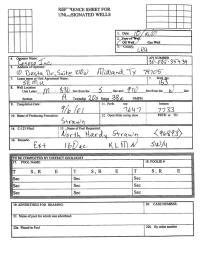 REFERENCE SHEET FOR
UNDESIGNATED WELLS
1. Date:
2. Type of Well:
Oil Well Gas Well
3. County:
Lea
4. Operator Name
API NUMBER
Conoco Inc.
5. Address of Operator
10 Desta Dr., Suite 100W Midland, TX 79705
6. Lease name or Unit Agreement Name
7. Well No.
SEMU
8. Well Location
Unit Letter M feet from the S line and feet from the line
Section Township 20s Range NMPM
9. Completion Date
10. Name of Producing Formation
Strawn
11. Perfs top bottom
7647 7733
12. Open Hole casing shoe PBTD or TD
14. C-123 Filed
15. Name of Pool Requested
North Hardy Strawn <96893>
16. Remarks
Ext 160 ac KLMN SW/4
TO BE COMPLETED BY DISTRICT GEOLOGIST
17. POOL NAME:
18. POOL ID #
T S, R E T S, R E T S, R E
Sec Sec Sec
Sec Sec Sec
Sec Sec Sec
19. ADVERTISED FOR HEARING:
20. CASE NUMBER:
21. Name of pool for which was advertised
22a. Placed in Pool
22b. By order number